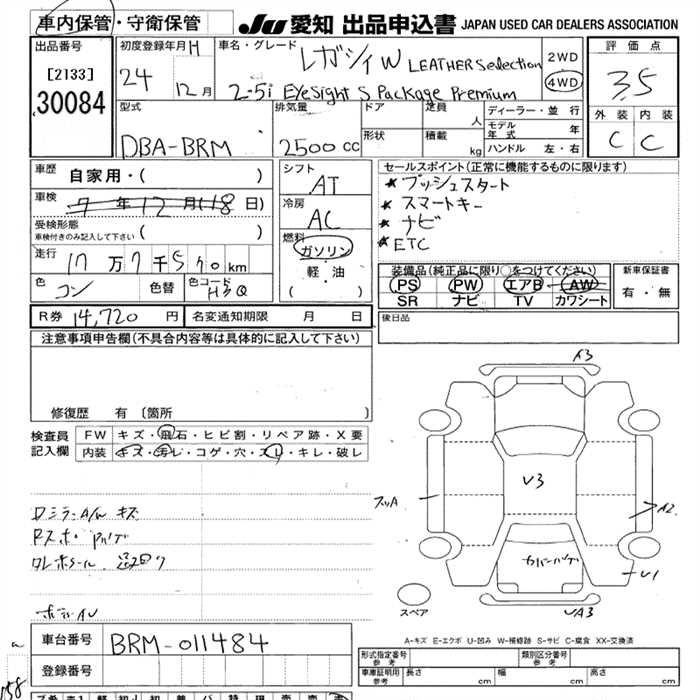 車内保管・守衛保管
JU 愛知 出品申込書 JAPAN USED CAR DEALERS ASSOCIATION
出品番号
[2133]
30084
初度登録年月 H
24 12月
車名・グレード
レガシィW LEATHER Selection
2-5i EyeSight S Package Premium
2WD
4WD
評価点
3.5
外装 内装
C C
型式
DBA-BRM
排気量
2500 cc
ドア
形状
定員 人
積載 kg
ディーラー・並行
モデル年式 年
ハンドル 左・右
車歴
自家用・( )
車検
7年12月(18日)
受検形態
車検付きのみ記入して下さい ( )
走行
万7千570km
色 コン 色替 色コード H3Q
シフト
AT
冷房
AC
燃料
ガソリン
・
軽・油
( )
セールスポイント(正常に機能するものに限ります)
★プッシュスタート
★スマートキー
★ナビ
★ETC
装備品(純正品に限り○をつけてください)
PS PW エアB AW
SR ナビ TV カワシート
新車保証書
有・無
R券 14,720円 名変通知期限 月 日
後日品
注意事項申告欄(不具合内容等は具体的に記入して下さい)
修復歴 有 〔箇所 〕
検査員記入欄
FW キズ・飛石・ヒビ割・リペア跡・X要
内装 キズ・汚レ・コゲ・穴・スレ・キレ・破レ
DミラーA/W キズ
A3
V3
A2
V1
カバーハゲ
UA3
スペア
A-キズ E-エクボ U-凹み W-補修跡 S-サビ C-腐食 XX-交換済
車台番号 BRM-011484
登録番号
形式指定番号 参考
類別区分番号 参考
車庫証明用 参考 長さ cm 幅 cm 高さ cm
158